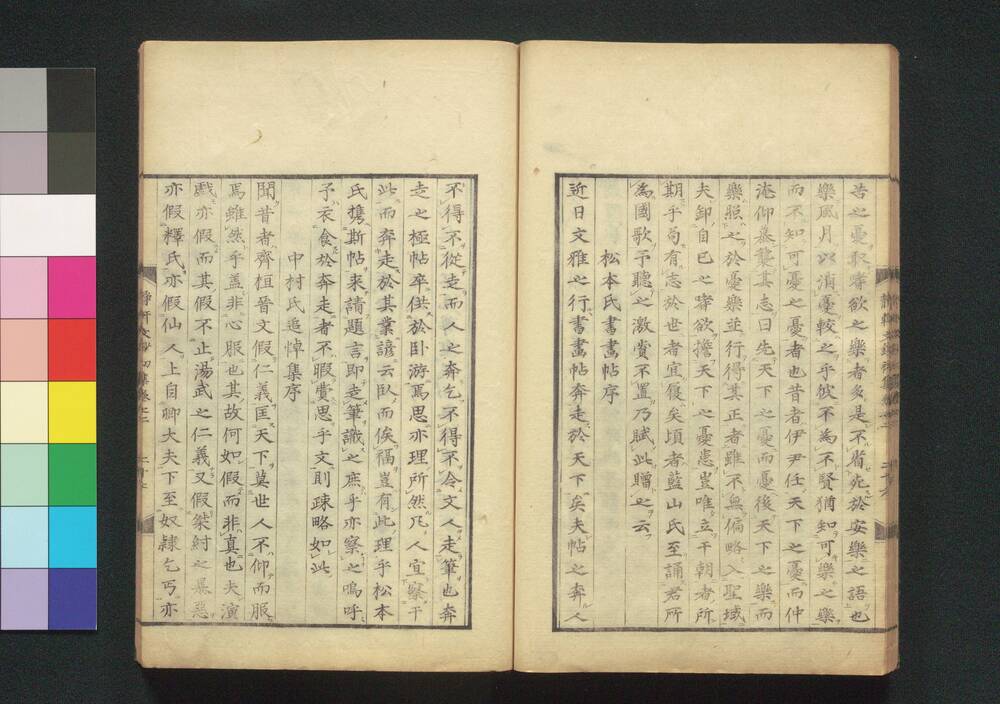 苦之憂取嗜欲之樂者多是不省死於安樂之語也
樂風月以消憂較之乎彼不為不賢猶知可樂之樂
而不知可憂之憂者也昔者伊尹任天下之憂而仲
淹仰慕襲其志曰先天下之憂而憂後天下之樂而
樂照之於憂樂並行得其正者雖不無偏略入聖域
夫卸自己之嗜欲擔天下之憂患豈唯立干朝者所
期乎苟有志於世者宜復矣頃者藍山氏至誦君所
為國歌予聽之激賞不置乃賦此贈之云
松本氏書畫帖序
近日文雅之行書畫帖奔走於天下矣夫帖之奔人
不得不從走而人之奔乞不得不令文人走筆也奔
走之極帖卒供於卧游焉思亦理所然凡人宜察干
此而奔走於其業諺云臥而俟福豈有此理乎松本
氏携斯帖来請題言即走筆識之庶乎亦察之嗚呼
予衣食於奔走者不暇費思乎文則疎略如此
中村氏追悼集序
聞昔者齊桓晉文假仁義匡天下莫世人不仰而服
焉雖然乎盖非心服也其故何如假而非真也夫演
戲亦假而其假不止湯武之仁義又假桀紂之暴惡
亦假釋氏亦假仙人上自卿大夫下至奴隷乞丐亦